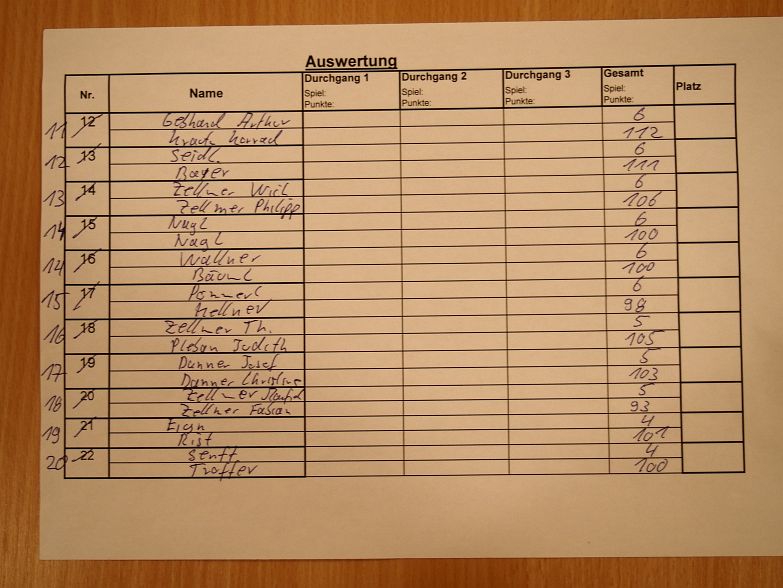 Auswertung
Nr. Name Durchgang 1 Durchgang 2 Durchgang 3 Gesamt Platz
Spiel: Spiel: Spiel: Spiel:
Punkte: Punkte: Punkte: Punkte:
11 12 Gebhard Arthur 6
Konrad 112
12 13 Seidl 6
Bayer 111
13 14 Zellner Willi 6
Zellner Philipp 106
14 15 Nagl 6
Nagl 100
14 16 Wallner 6
Bäuml 100
15 17 Pommerl 6
Kellner 98
16 18 Zellner Th. 5
Judith 105
17 19 Danner Josef 5
Danner Christine 103
18 20 Zellner 5
Zellner Fabian 93
19 21 4
Rist 101
20 22 Senft 4
100